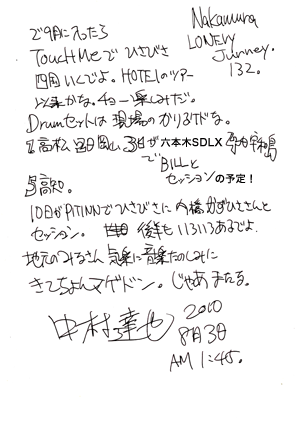 で9月に入ったら
TouchMeで ひさびさ
四国いくでよ。HOTELのツアー
以来かな。チョー楽しみだ。
Drumセットは 現場のかりるけどな。
1高松 2日岡山 3日が六本木SDLX
でBILLと
セッションの予定!
5高知。
10日がPITINNでひさびさに 内橋かずひささんと
セッション。 後半も いろいろあるでよ.
地元のみなさん 気楽に音楽たのしみに
きてちょんマゲドン。じゃあ またな。
中村達也
2010
8月3日
AM 1:45.
Nakamura
LONELY
Jurney.
132.